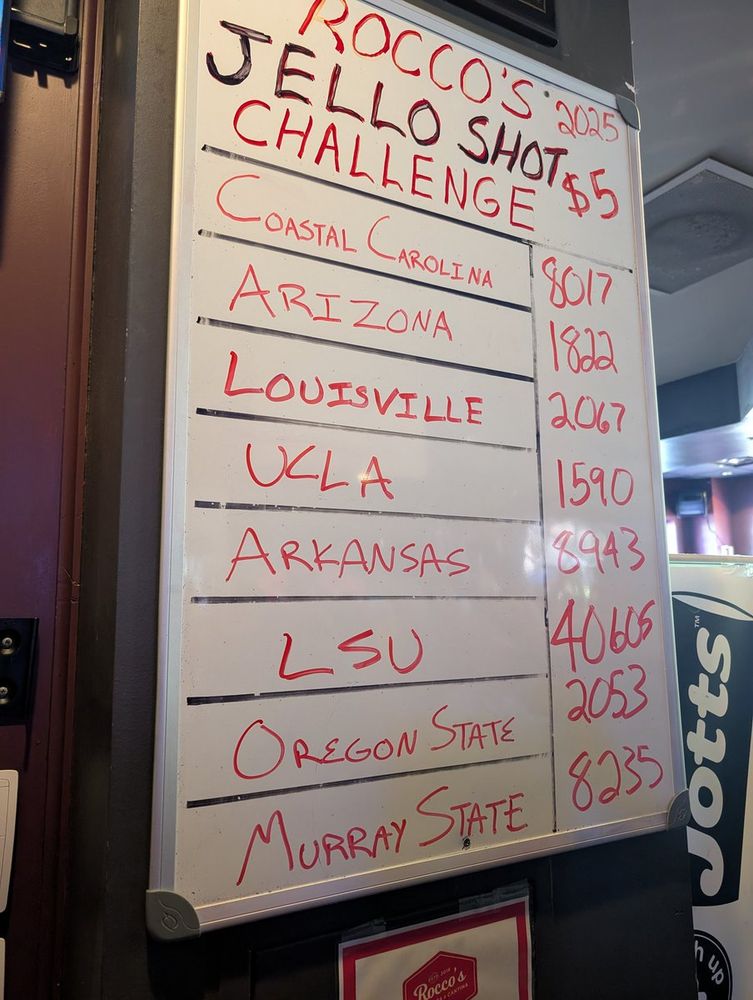 ROCCO'S 2025
JELLO SHOT
CHALLENGE $5
COASTAL CAROLINA 8017
ARIZONA 1822
LOUISVILLE 2067
UCLA 1590
ARKANSAS 8943
LSU 40605
OREGON STATE 2053
MURRAY STATE 8235
Jotts™
Rocco's
CANTINA
up